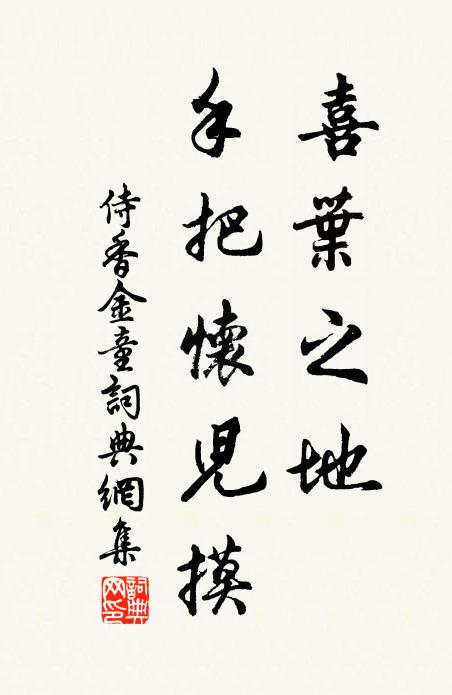 喜葉之地
手把懷兒摸
侍香金童詞典網集
詞典網印